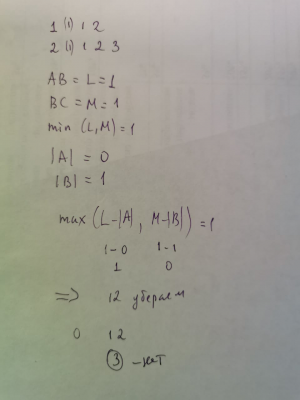 1 (1) 1 2
2 (1) 1 2 3
AB = L = 1
BC = M = 1
min (L, M) = 1
|A| = 0
|B| = 1
max (L-|A|, M-|B|) = 1
1-0 1-1
1 0
=> 12 убераем
0 12
3 - нет